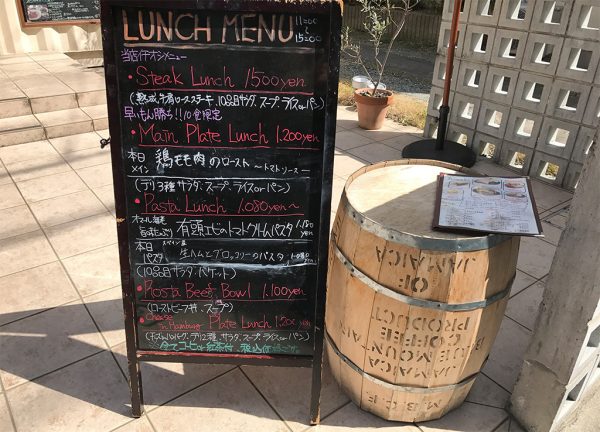 LUNCH MENU 11:00 15:00
当店イチオシメニュー
・Steak Lunch 1500yen
(熟成牛肩ロースステーキ、10品目サラダ、スープ、ライスorパン)
早いもん勝ち!!10食限定
・Main Plate Lunch 1.200yen
本日メイン 鶏もも肉のロースト ～トマトソース～
(デリ3種、サラダ、スープ、ライスorパン)
・Pasta Lunch 1.080yen～
有頭エビのトマトクリームパスタ 1.180yen
本日パスタ 生ハムとブロッコリーのパスタ
(10品目サラダ、バケット)
・Rosta Beef Bowl 1.100yen
(ローストビーフ丼、スープ)
・Cheese in Hamburg Plate Lunch 1.200yen
デリ2種、サラダ、スープ、ライスorパン)
全てコーヒーor紅茶付、税込
JAMAICA
OF
PRODUCT
COFFEE
BLUE MOUNTAIN
JAMAICA
M B C F